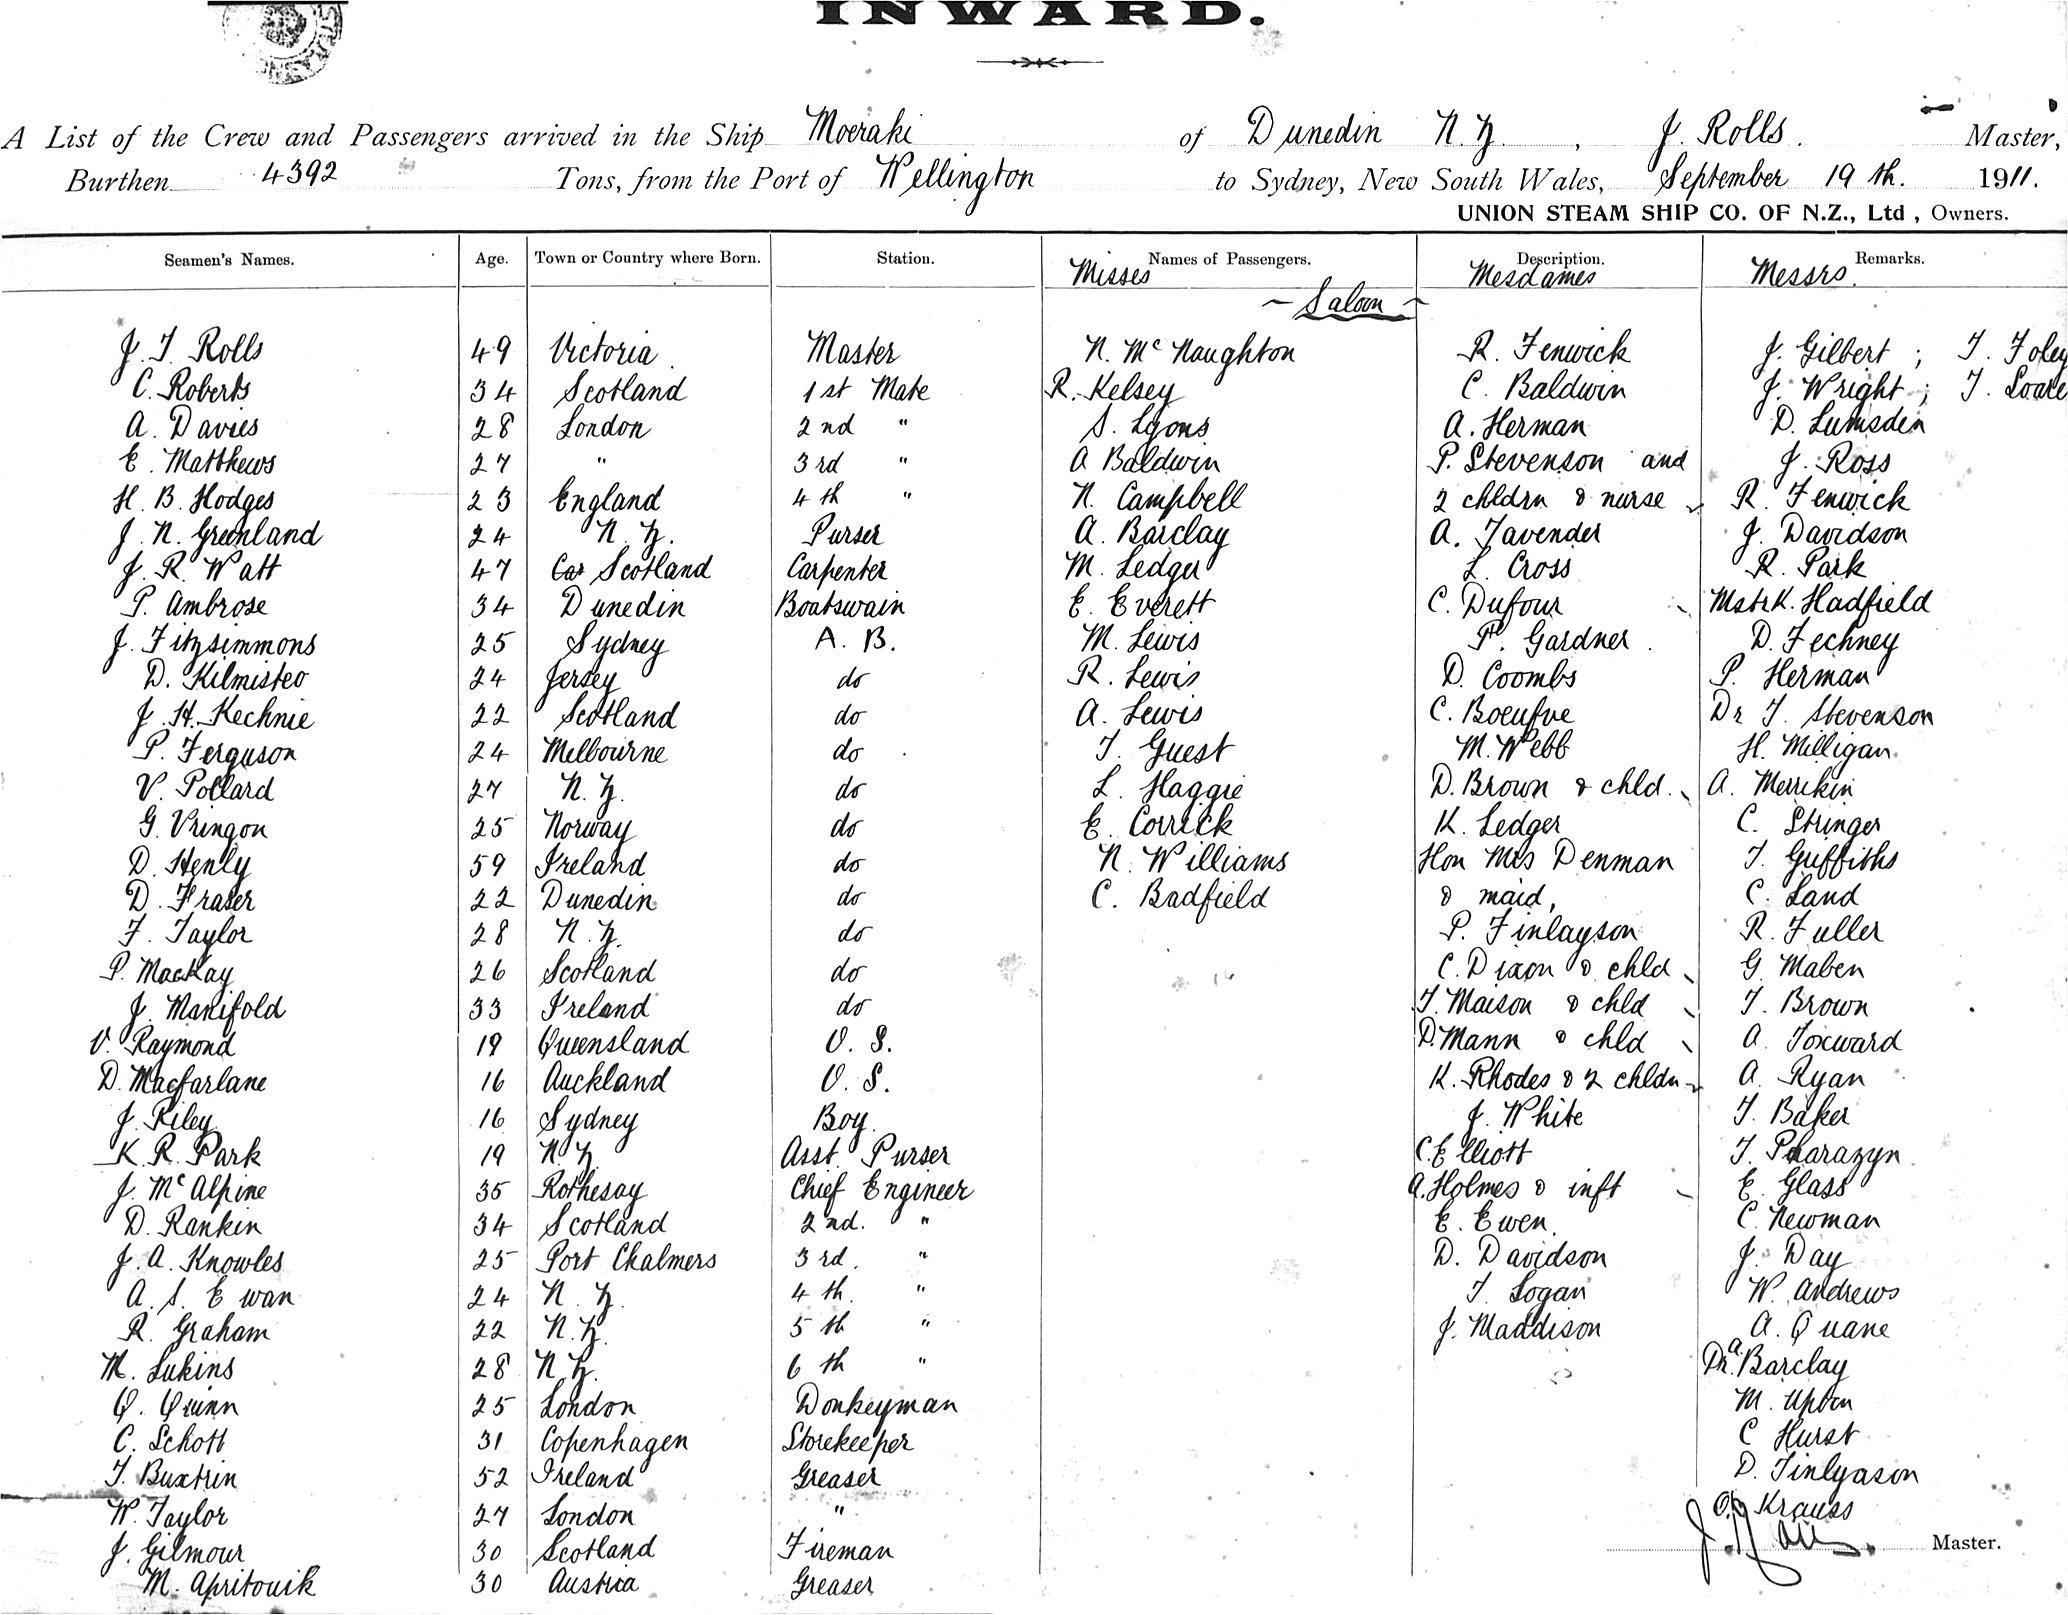 INWARD.
A List of the Crew and Passengers arrived in the Ship Moeraki of Dunedin N.Z., J. Rolls. Master,
Burthen 4392 Tons, from the Port of Wellington to Sydney, New South Wales, September 19th. 1911.
UNION STEAM SHIP CO. OF N.Z., Ltd, Owners.
Seamen's Names. Age. Town or Country where Born. Station. Names of Passengers. Description. Remarks.
Misses Mesdames Messrs.
~ Saloon ~
J. T. Rolls 49 Victoria Master N. McNaughton R. Fenwick J. Gilbert ; T. Foley
C. Roberts 34 Scotland 1st Mate R. Kelsey C. Baldwin J. Wright ; T.
A. Davies 28 London 2nd " S. Lyons A. Herman D. Lumsden
E. Matthews 27 " 3rd " A Baldwin P. Stevenson and J. Ross
H. B. Hodges 23 England 4th " N. Campbell 2 chldrn & nurse R. Fenwick
J. N. Greenland 24 N. Z. Purser A. Barclay A. Tavender J. Davidson
J. R. Watt 47 Scotland Carpenter M. Ledger L. Cross R. Park
P. Ambrose 34 Dunedin Boatswain E. Everett C. Dufour Mstr K. Hadfield
J. Fitzsimmons 25 Sydney A. B. M. Lewis P. Gardner D. Fechney
D. Kilmisteo 24 Jersey do R. Lewis D. Coombs P. Herman
J. H. Kechnie 22 Scotland do A. Lewis C. Boeufve Dr T. Stevenson
P. Ferguson 24 Melbourne do T. Guest M. Webb H. Milligan
V. Pollard 27 N. Z. do L. Haggie D. Brown & chld. A. Merrikin
G. Vringon 25 Norway do E. Corrick K. Ledger C. Stringer
D. Henly 59 Ireland do N. Williams Hon Mrs Denman T. Griffiths
D. Fraser 22 Dunedin do C. Badfield & maid, C. Land
F. Taylor 28 N. Z. do P. Finlayson R. Fuller
P. MacKay 26 Scotland do C. Dixon & chld G. Maben
J. Manifold 33 Ireland do T. Maison & chld T. Brown
V. Raymond 19 Queensland O. S. D. Mann & chld A. Toxward
D. Macfarlane 16 Auckland O. S. K. Rhodes & 2 chldn A. Ryan
J. Riley 16 Sydney Boy. J. White T. Baker
K. R. Park 19 N. Z. Asst. Purser C. Elliott T. Pharazyn
J. McAlpine 35 Rothesay Chief Engineer A. Holmes & inft E. Glass
D. Rankin 34 Scotland 2nd. " E. Ewen C. Newman
J. A. Knowles 25 Port Chalmers 3rd. " D. Davidson J. Day
A. S. Ewan 24 N. Z. 4th. " T. Logan W. Andrews
R. Graham 22 N. Z. 5th " J. Maddison A. Quane
M. Lukins 28 N. Z. 6th " Dr. A. Barclay
Q. Quinn 25 London Donkeyman M. Upton
C. Schott 31 Copenhagen Storekeeper C Hurst
T. Buxtrin 52 Ireland Greaser D. Finlyason
W. Taylor 27 London " O. Krauss
J. Gilmour 30 Scotland Fireman J. Rolls Master.
M. Apritouik 30 Austria Greaser